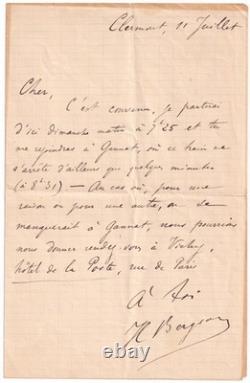 Clermont, 11 Juillet
Cher,
C'est convenu, je partirai
d'ici dimanche matin à 7h25 et tu
me rejoindras à Gannat, où ce train ne
s'arrête d'ailleurs que quelques minutes
(à 8h31) — Au cas où, pour une
raison ou pour une autre, on se
manquerait à Gannat, nous pourrions
nous donner rendez-vous à Vichy,
hôtel de la Poste, rue de Paris
A toi
H Bergson
© ebay.com